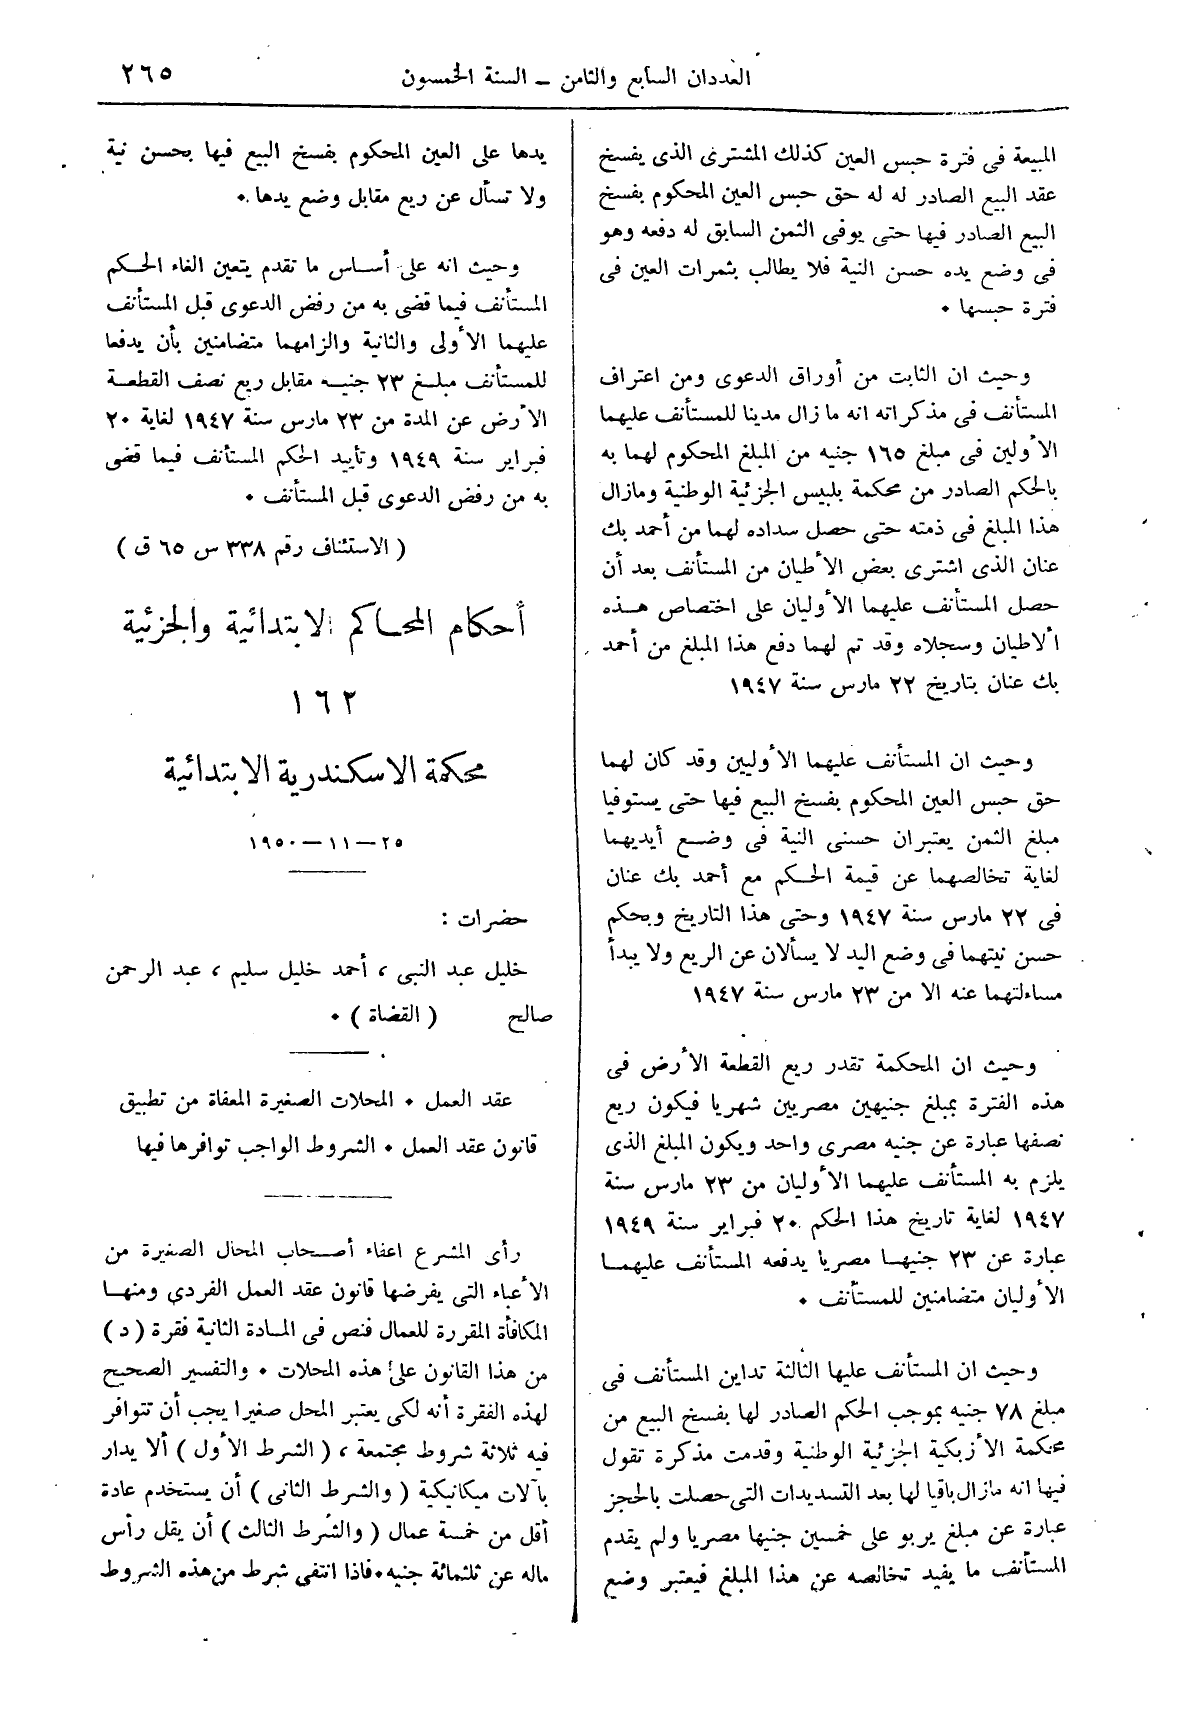 العددان السابع والثامن – السنة الخمسون
٢٦٥
المبيعة فى فترة حبس العين كذلك المشترى الذى يفسخ
عقد البيع الصادر له له حق حبس العين المحكوم بفسخ
البيع الصادر فيها حتى يوفى الثمن السابق له دفعه وهو
فى وضع يده حسن النية فلا يطالب بثمرات العين فى
فترة حبسها •
وحيث ان الثابت من أوراق الدعوى ومن اعتراف
المستأنف فى مذكراته انه مازال مدينا للمستأنف عليهما
الأولين فى مبلغ ١٦٥ جنيه من المبلغ المحكوم لهما به
بالحكم الصادر من محكمة بلبيس الجزئية الوطنية ومازال
هذا المبلغ فى ذمته حتى حصل سداده لهما من أحمد بك
عنان الذى اشترى بعض الأطيان من المستأنف بعد أن
حصل المستأنف عليهما الأوليان على اختصاص هذه
الاطيان وسجلاه وقد تم لهما دفع هذا المبلغ من أحمد
بك عنان بتاريخ ٢٢ مارس سنة ١٩٤٧
وحيث ان المستأنف عليهما الأوليين وقد كان لهما
حق حبس العين المحكوم بفسخ البيع فيها حتى يستوفيا
مبلغ الثمن يعتبران حسنى النية فى وضع أيديهما
لغاية تخالصهما عن قيمة الحكم مع أحمد بك عنان
فى ٢٢ مارس سنة ١٩٤٧ وحتى هذا التاريخ وبحكم
حسن نيتهما فى وضع اليد لا يسألان عن الريع ولا يبدأ
مساءلتهما عنه الا من ٢٣ مارس سنة ١٩٤٧
وحيث ان المحكمة تقدر ريع القطعة الأرض فى
هذه الفترة بمبلغ جنيهين مصريين شهريا فيكون ريع
نصفها عبارة عن جنيه مصرى واحد ويكون المبلغ الذى
يلزم به المستأنف عليهما الأوليان من ٢٣ مارس سنة
١٩٤٧ لغاية تاريخ هذا الحكم ٢٠ فبراير سنة ١٩٤٩
عبارة عن ٢٣ جنيها مصريا يدفعه المستأنف عليهما
الأوليان متضامنين للمستأنف •
وحيث ان المستأنف عليها الثالثة تداين المستأنف فى
مبلغ ٧٨ جنيه بموجب الحكم الصادر لها بفسخ البيع من
محكمة الأزبكية الجزئية الوطنية وقدمت مذكرة تقول
فيها انه مازال باقيا لها بعد التسديدات التى حصلت بالحجز
عبارة عن مبلغ يربو على خمسين جنيها مصريا ولم يقدم
المستأنف ما يفيد تخالصه عن هذا المبلغ فيعتبر وضع
يدها على العين المحكوم بفسخ البيع فيها بحسن نية
ولا تسأل عن ريع مقابل وضع يدها •
وحيث انه على أساس ما تقدم يتعين الغاء الحكم
المستأنف فيما قضى به من رفض الدعوى قبل المستأنف
عليهما الأولى والثانية والزامهما متضامنين بأن يدفعا
للمستأنف مبلغ ٢٣ جنيه مقابل ريع نصف القطعة
الأرض عن المدة من ٢٣ مارس سنة ١٩٤٧ لغاية ٢٠
فبراير سنة ١٩٤٩ وتأييد الحكم المستأنف فيما قضى
به من رفض الدعوى قبل المستأنف •
( الاستئناف رقم ٣٣٨ س ٦٥ ق )
أحكام المحاكم الابتدائية والجزئية
١٦٢
محكمة الاسكندرية الابتدائية
٢٥ – ١١ – ١٩٥٠
حضرات :
خليل عبد النبى ، أحمد خليل سليم ، عبد الرحمن
صالح ( القضاة ) •
عقد العمل • المحلات الصغيرة المعفاة من تطبيق
قانون عقد العمل • الشروط الواجب توافرها فيها
رأى المشرع اعفاء أصحاب المحال الصغيرة من
الأعباء التى يفرضها قانون عقد العمل الفردى ومنها
المكافأة المقررة للعمال فنص فى المادة الثانية فقرة (د)
من هذا القانون على هذه المحلات • والتفسير الصحيح
لهذه الفقرة أنه لكى يعتبر المحل صغيرا يجب أن تتوافر
فيه ثلاثة شروط مجتمعة ، ( الشرط الأول ) ألا يدار
بآلات ميكانيكية ( والشرط الثانى ) أن يستخدم عادة
أقل من خمسة عمال ( والشرط الثالث ) أن يقل رأس
ماله عن ثلثمائة جنيه • فاذا انتفى شرط من هذه الشروط